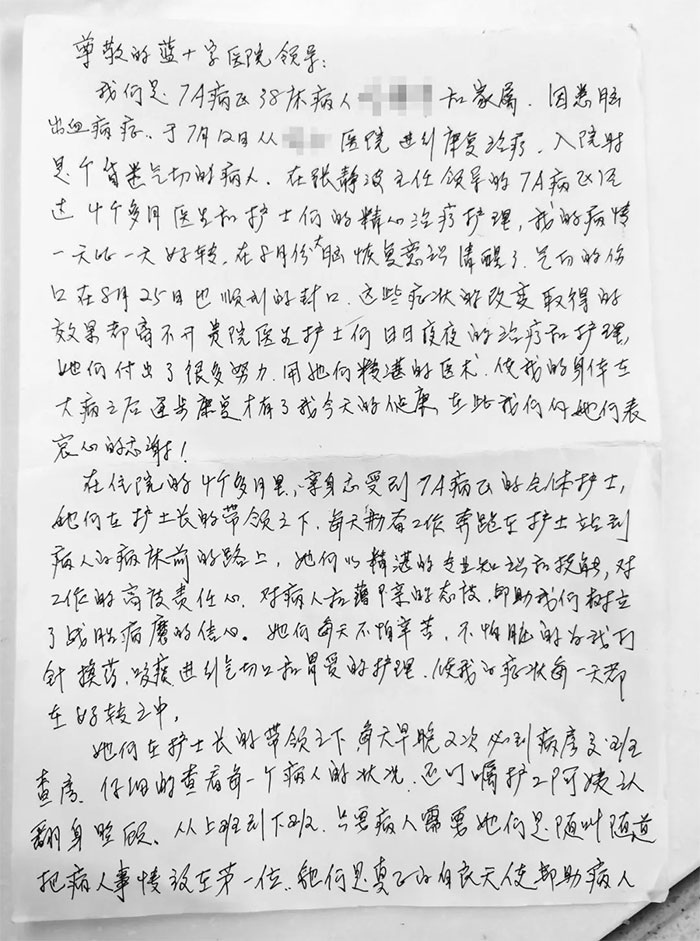 尊敬的蓝十字医院领导：
我们是7A病区38床病人和家属．因患脑
出血病症．于7月12日从医院进到康复治疗．入院时
是个昏迷气切的病人．在张静波主任领导的7A病区经
过4个多月医生和护士们的精心治疗护理，我的病情
一天比一天好转．在8月份大脑恢复意识清醒了．气切的伤
口在8月25日也顺利的封口．这些症状的改变取得的
效果都离不开贵院医生护士们日日夜夜的治疗和护理，
她们付出了很多努力．用她们精湛的医术．使我的身体在
大病之后逐步康复才有了我今天的健康．在此我们向她们表
衷心的感谢！
在住院的4个多月里，亲身感受到7A病区的全体护士，
她们在护士长的带领之下．每天勤奋工作奔跑在护士站到
病人的病床前的路上，她们以精湛的专业知识和技能，对
工作的高度责任心．对病人和蔼可亲的态度，帮助我们树立
了战胜病魔的信心。她们每天不怕辛苦，不怕脏的为我打
针换药．吸痰进行气切口和胃管的护理．使我的症状每一天都
在好转之中，
她们在护士长的带领之下每天早晚2次必到病房交班
查房．仔细的查看每一个病人的状况．还叮嘱护工阿姨
翻身照顾．从上班到下班．只要病人需要她们是随叫随
把病人事情放在第一位．她们是真正的白衣天使帮助病人